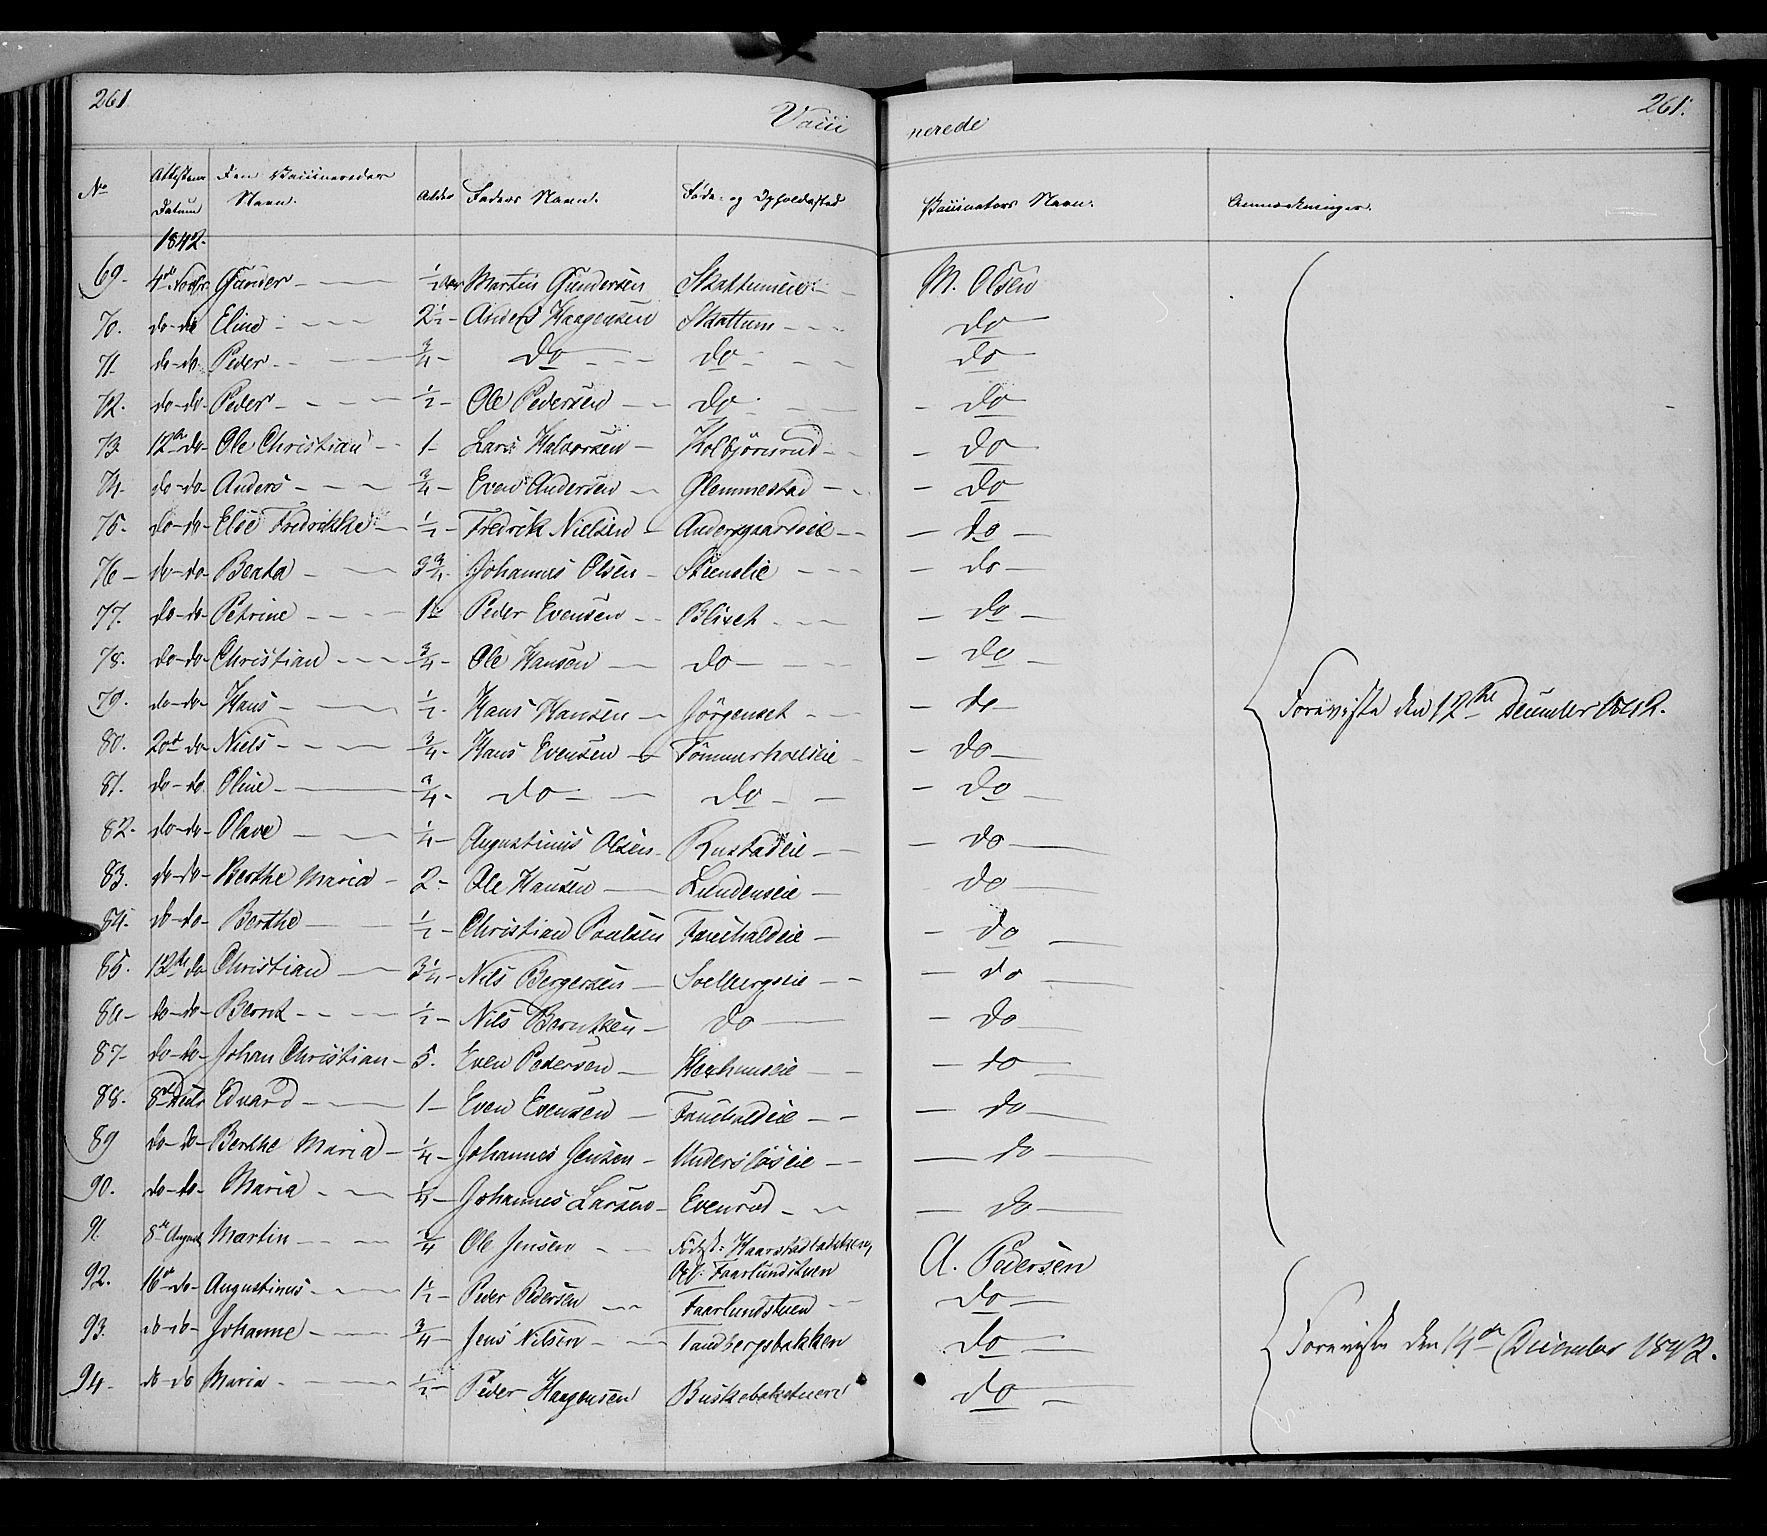 261. Vacci nerede 261.
No Attestens Datum Den Vaccineredes Navn. Alder Faders Navn. Føde- og Opholdssted Vaccinators Navn. Anmærkninger.
1842.
69. 4de Novbr. Gunder 1/2 Aar Martin Gundersen Skattumeie M. Olsen
70. do-do Eline 2 1/2 Anders Haagensen Skattum do
71. do-do. Peder 3/4 do do do
72. do-do. Peder 1/2 Ole Pedersen do do
73. 12te do Ole Christian 1 Lars Halvorsen Kolbjörnrud do
74. do-do Anders 3/4 Even Andersen Glemmestad do
75. do-do Else Fredrikke 1/2 Fredrik Nielsen Andersgaardseie do
76 do-do Beata 3 3/4 Johannes Olsen Steenslie do
77. do-do Petrine Peder Evensen Blixet do
78. do-do Christian 3/4 Ole Hansen do do
79. do-do Hans 1/2 Hans Hansen Jörgenset do
80. 20de do Niels 3/4 Hans Evensen Tömmerholseie do
81. do-do Oline 3/4 do do do
82. do-do Olave 1/4 Augustinus Olsen Rustadeie do
83. do-do Berthe Maria 2 Ole Hansen Lundenseie do
84. do-do Berthe 1/2 Christian Poulsen Fauchaldeie do
85. 12te do Christian 3 1/4 Nils Bergersen Soelbergseie do
86 do-do Bernt 1/2 Nils Berntsen do do
87 do-do Johan Christian 5. Even Pedersen Hexhumseie do
88. 8de Decbr Edvard 1 Even Evensen Fauchaldeie do
89 do-do Berthe Maria 1/4 Johannes Jensen Undersløseie do
90. do-do Maria 1/4 Johannes Larsen Evenrud do
Forevista den 12te December 1842.
91. 8de August Martin 3/4 Ole Jensen Födest: Haarstadbakken, A. Pedersen
Oph: Faarlundstuen
92. 16de do Augustinus 1 1/2 Peder Pedersen Faarlundstuen do
93. do-do Johanne 3/4 Jens Nilsen Sandbergsbakken do
94. do-do Maria 1/2 Peder Haagensen do
Foreviste den 14de December 1842.